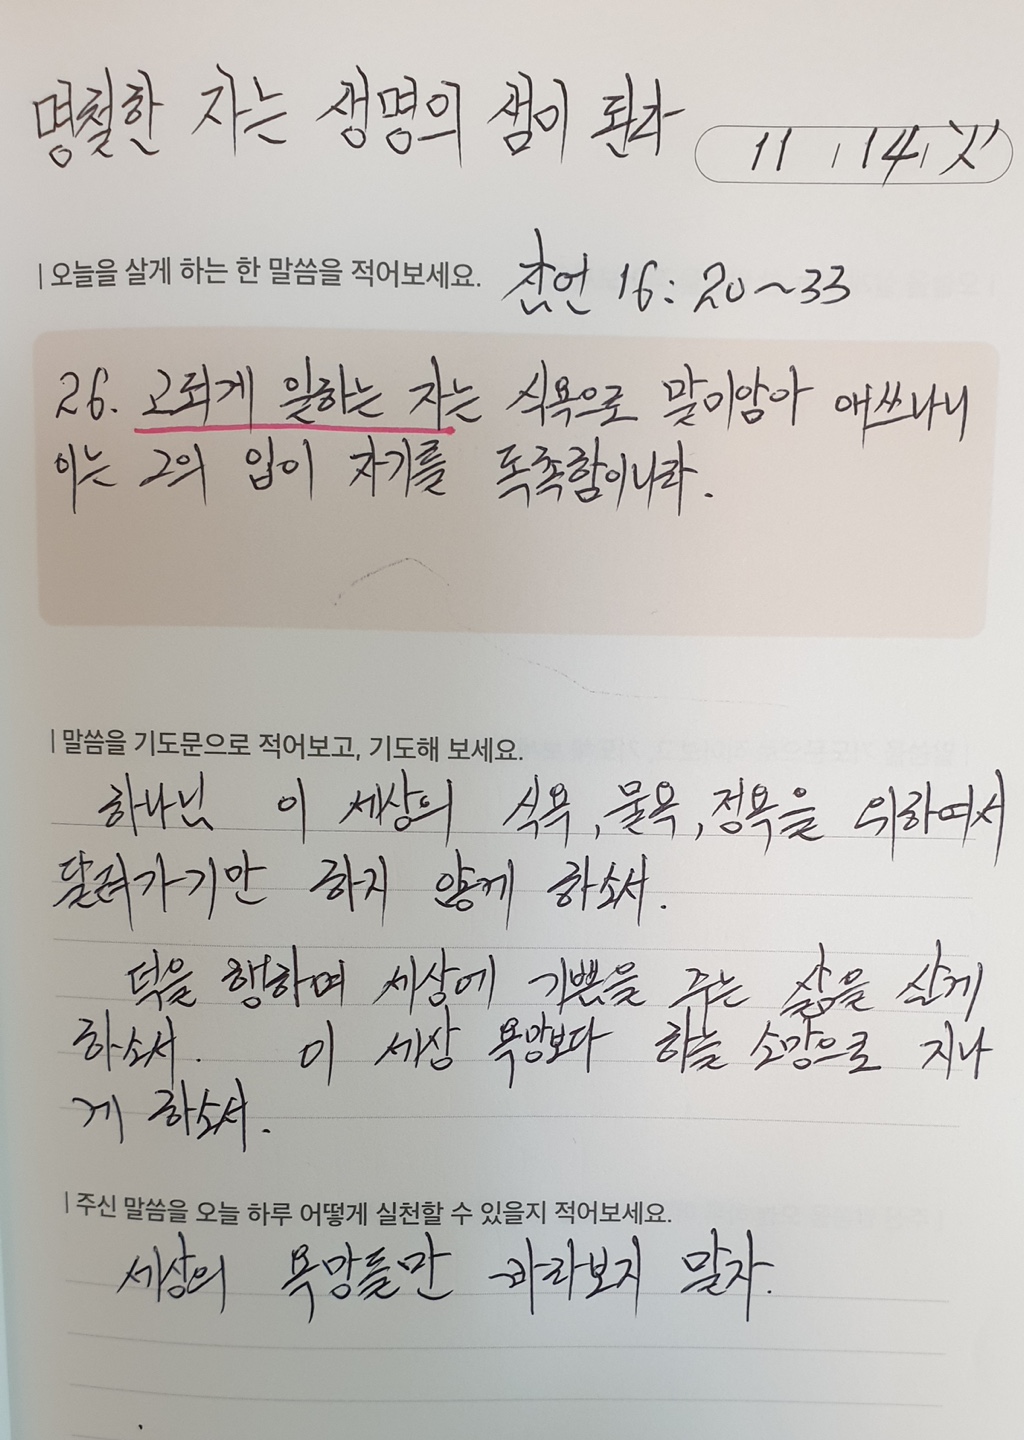 명철한 자는 생명의 샘이 된다
11 , 14,
| 오늘을 살게 하는 한 말씀을 적어보세요. 잠언 16: 20~33
26. 고되게 일하는 자는 식욕으로 말미암아 애쓰나니
이는 그의 입이 자기를 독촉함이니라.
| 말씀을 기도문으로 적어보고, 기도해 보세요.
하나님 이 세상의 식욕, 물욕, 정욕을 위하여서
달려가기만 하지 않게 하소서.
덕을 행하며 세상에 기쁨을 주는 삶을 살게
하소서. 이 세상 욕망보다 하늘 소망으로 지나
게 하소서.
| 주신 말씀을 오늘 하루 어떻게 실천할 수 있을지 적어보세요.
세상의 욕망들만 바라보지 말자.